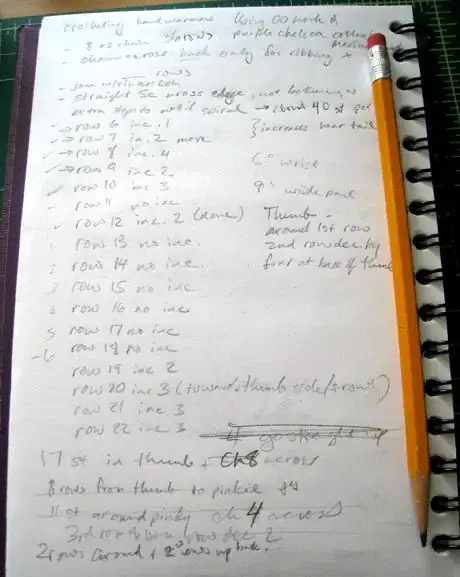 crocheting handwarmers Using OO hook &
- 8 sc chain purple chelsea
- chain across back only for ribbing x
rows
- straight Sc across edge, not bothering w
extra stitches until spiral → about 40 st per
✓→ row 6 inc. 1 } increases near tail
✓→ row 7 inc. 2 more
✓→ row 8 inc. 4
✓→ row 9 inc 2 6" wrist
✓ row 10 inc 3 9" wide palm
- row 11 no inc
✓ row 12 inc. 2 (done) Thumb -
1 row 13 no inc. around 1st row
2 row 14 no inc. 2nd row dec by
3 row 15 no inc. four at base of thumb
4 row 16 no inc
5 row 17 no inc
-6 row 18 no inc
row 19 inc 2
row 20 inc 3 (towards thumb side/
row 21 inc 3
row 22 inc 3
17 st in thumb + Ch8 across
8 rows from thumb to pinkie
11 st around pinky ch 4 across
3rd row dec 2
2 rows around + 2 rows up back.